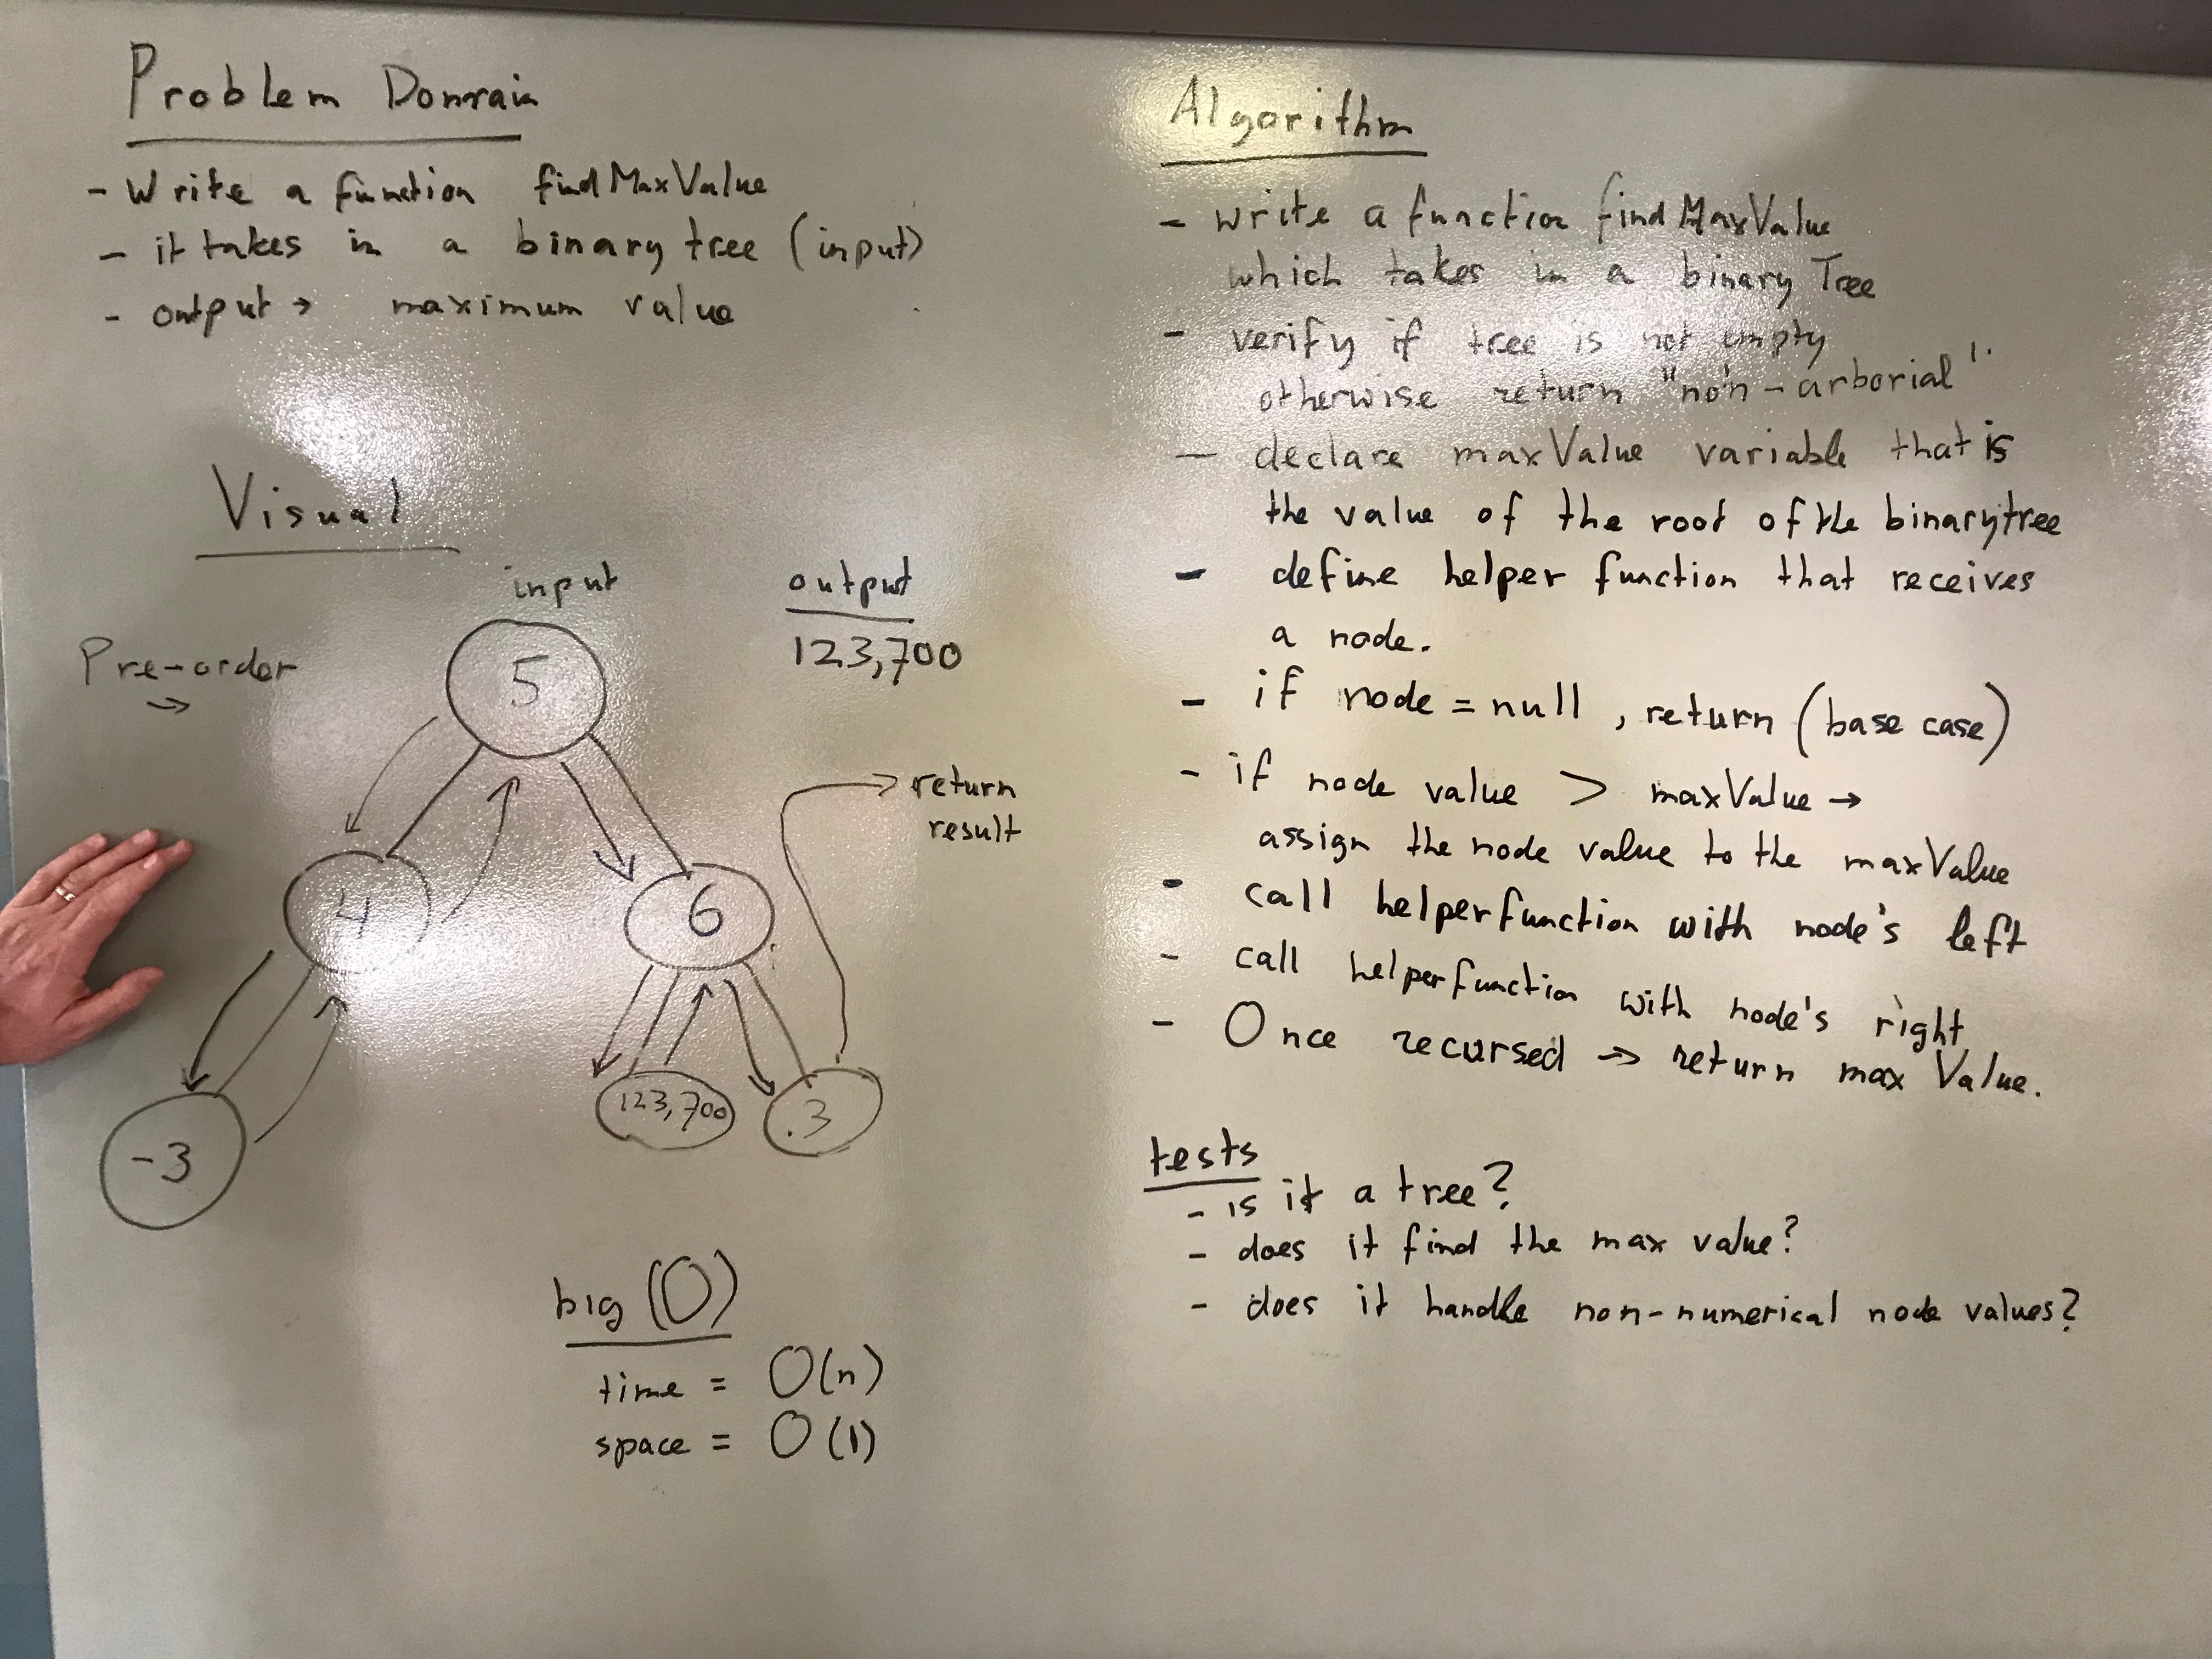 Problem Domain
- Write a function findMaxValue
- it takes in a binary tree (input)
- output → maximum value
Visual
input
output
123,700
Pre-order
→
5
return
result
4
6
-3
123,700
.3
big (O)
time = O(n)
space = O(1)
Algorithm
- write a function findMaxValue
which takes in a binary Tree
- verify if tree is not empty
otherwise return "non-arborial".
- declare maxValue variable that is
the value of the root of the binarytree
- define helper function that receives
a node.
- if node = null, return (base case)
- if node value > maxValue →
assign the node value to the maxValue
- call helperfunction with node's left
- call helperfunction with node's right
- Once recursed → return max Value.
tests
- is it a tree?
- does it find the max value?
- does it handle non-numerical node values?